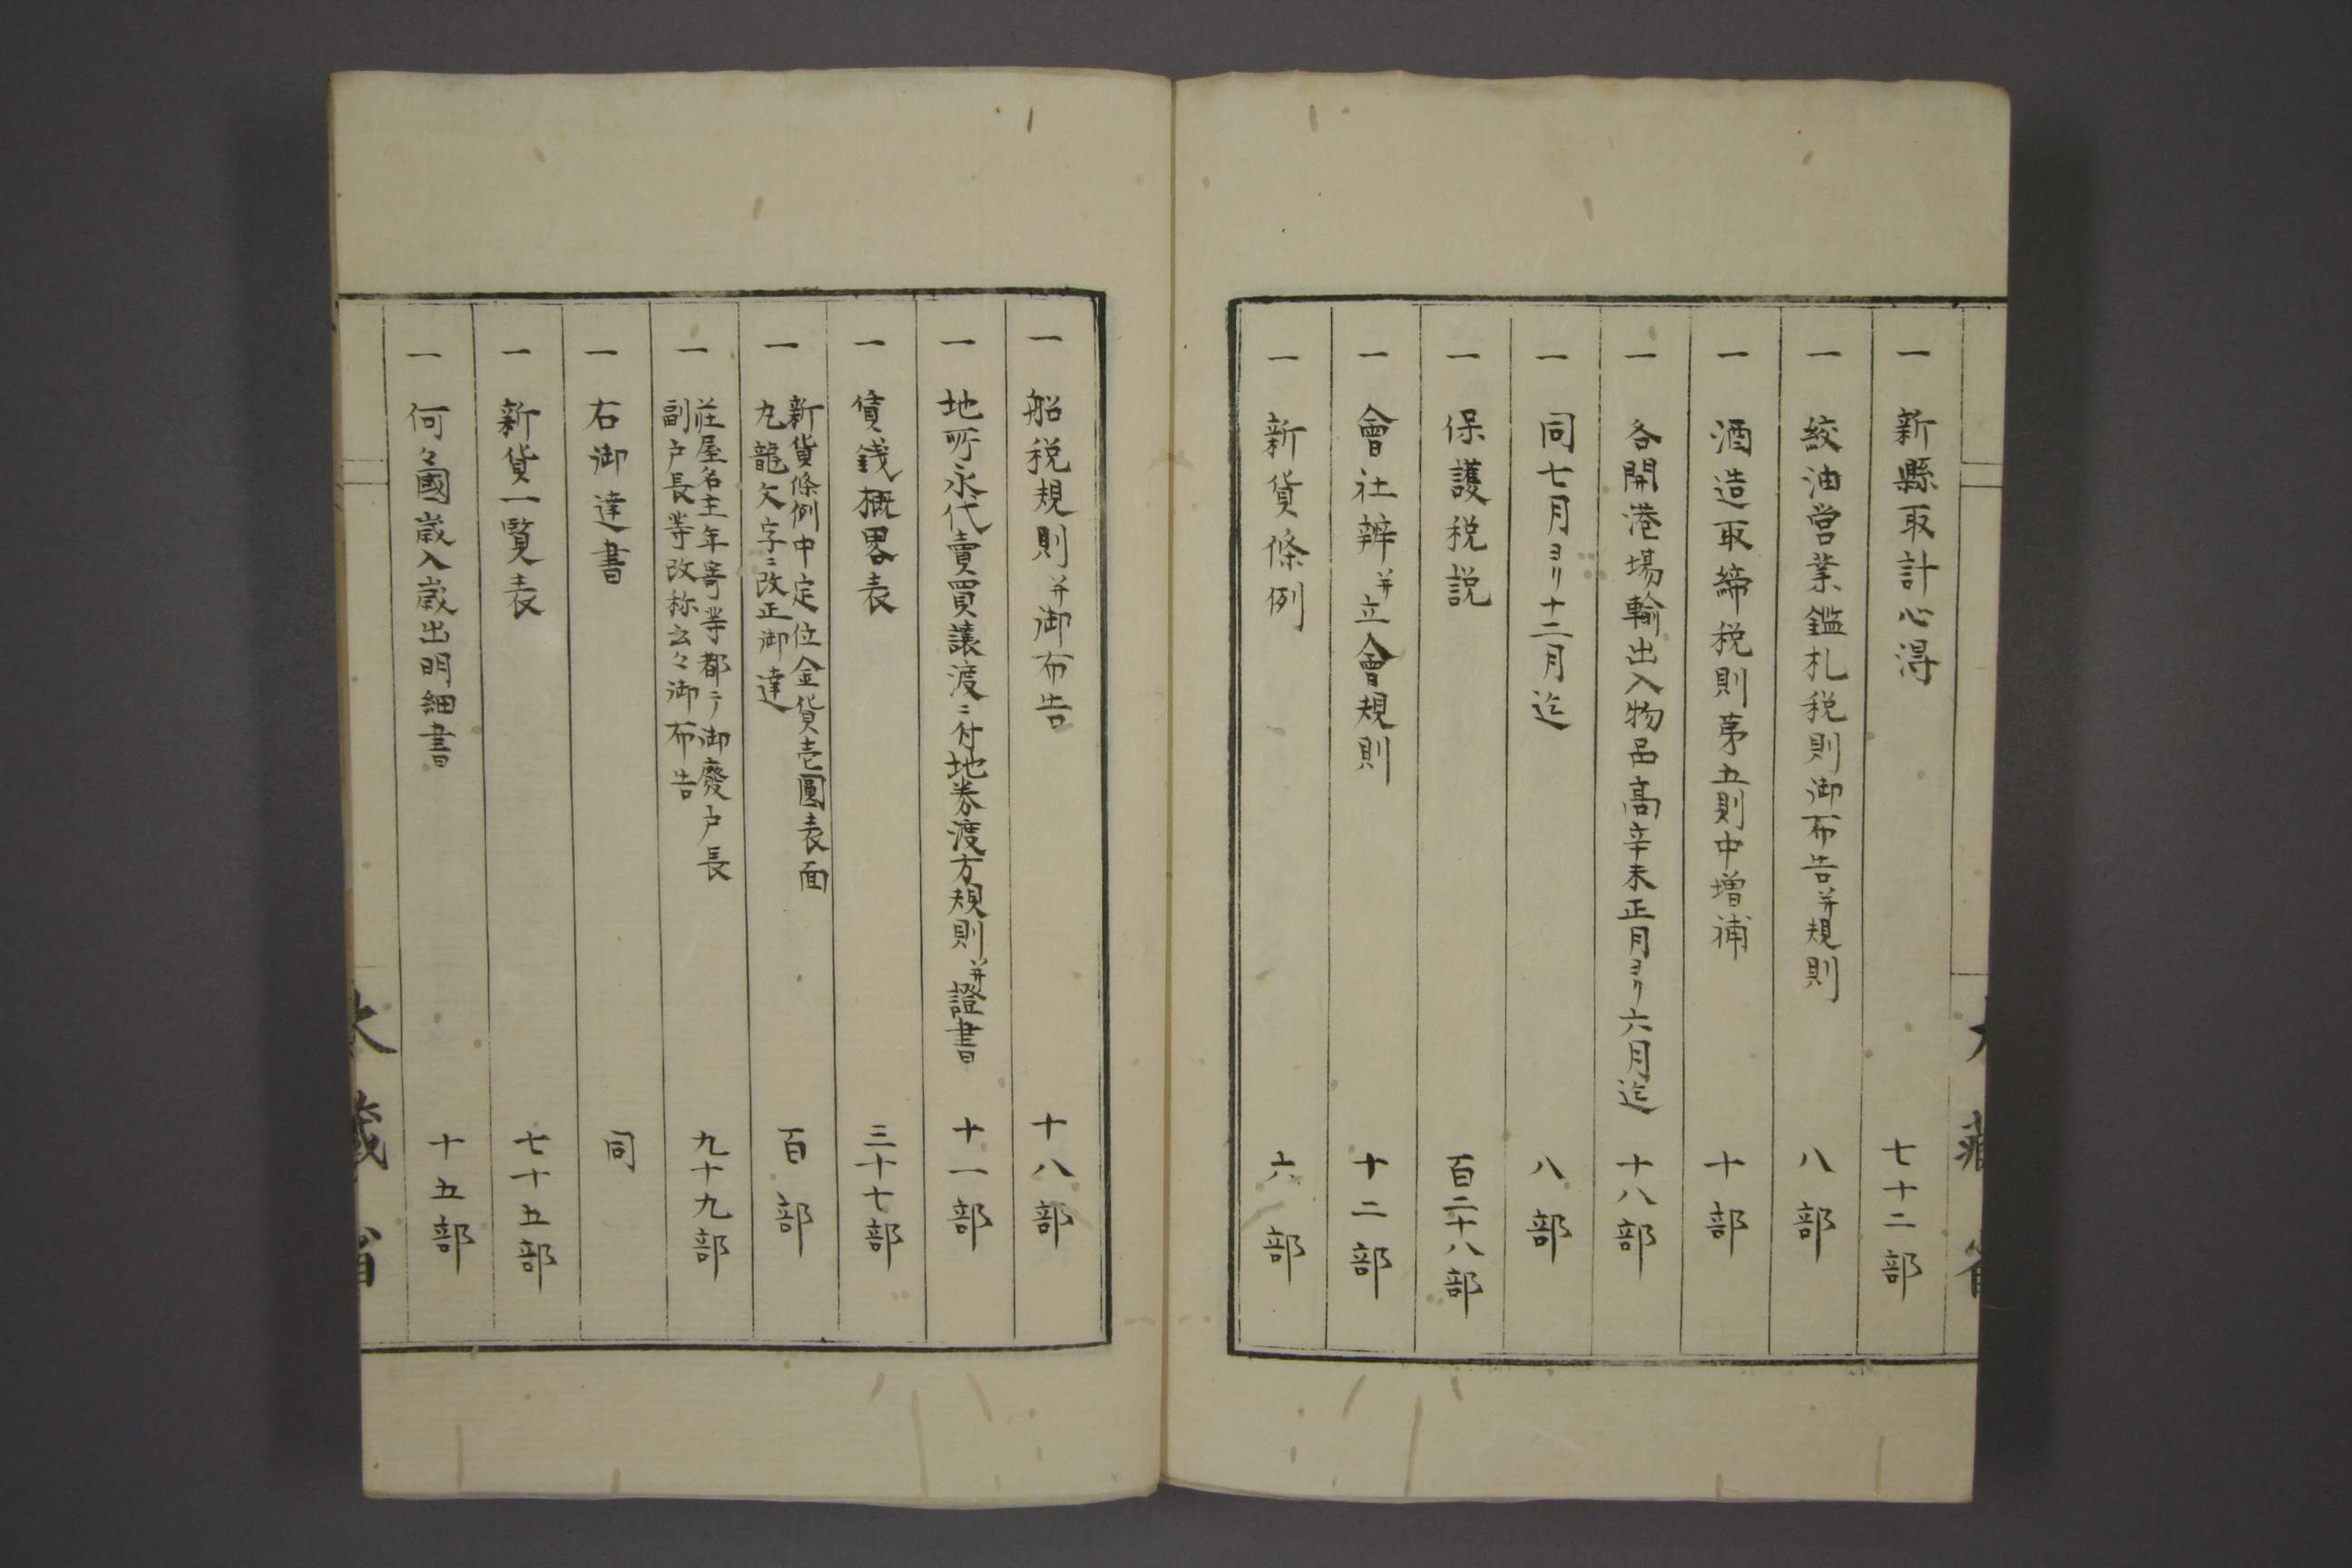 一 新縣取計心得 七十二部
一 絞油営業鑑札税則御布告并規則 八部
一 酒造取締税則第五則中増補 十部
一 各開港場輸出入物品高辛未正月ヨリ六月迄 十八部
一 同七月ヨリ十二月迄 八部
一 保護税説 百二十八部
一 會社辨并立會規則 十二部
一 新貨條例 六部
一 船税規則并御布告 十八部
一 地所永代賣買譲渡ニ付地券渡方規則并證書 十一部
一 債銭概畧表 三十七部
一 新貨條例中定位金貨壱圓表面
九龍文字ニ改正御達 百部
一 荘屋名主年寄等都テ御廢戸長
副戸長等改称云々御布告 九十九部
一 右御達書 同
一 新貨一覧表 七十五部
一 何々國歳入歳出明細書 十五部
大蔵省